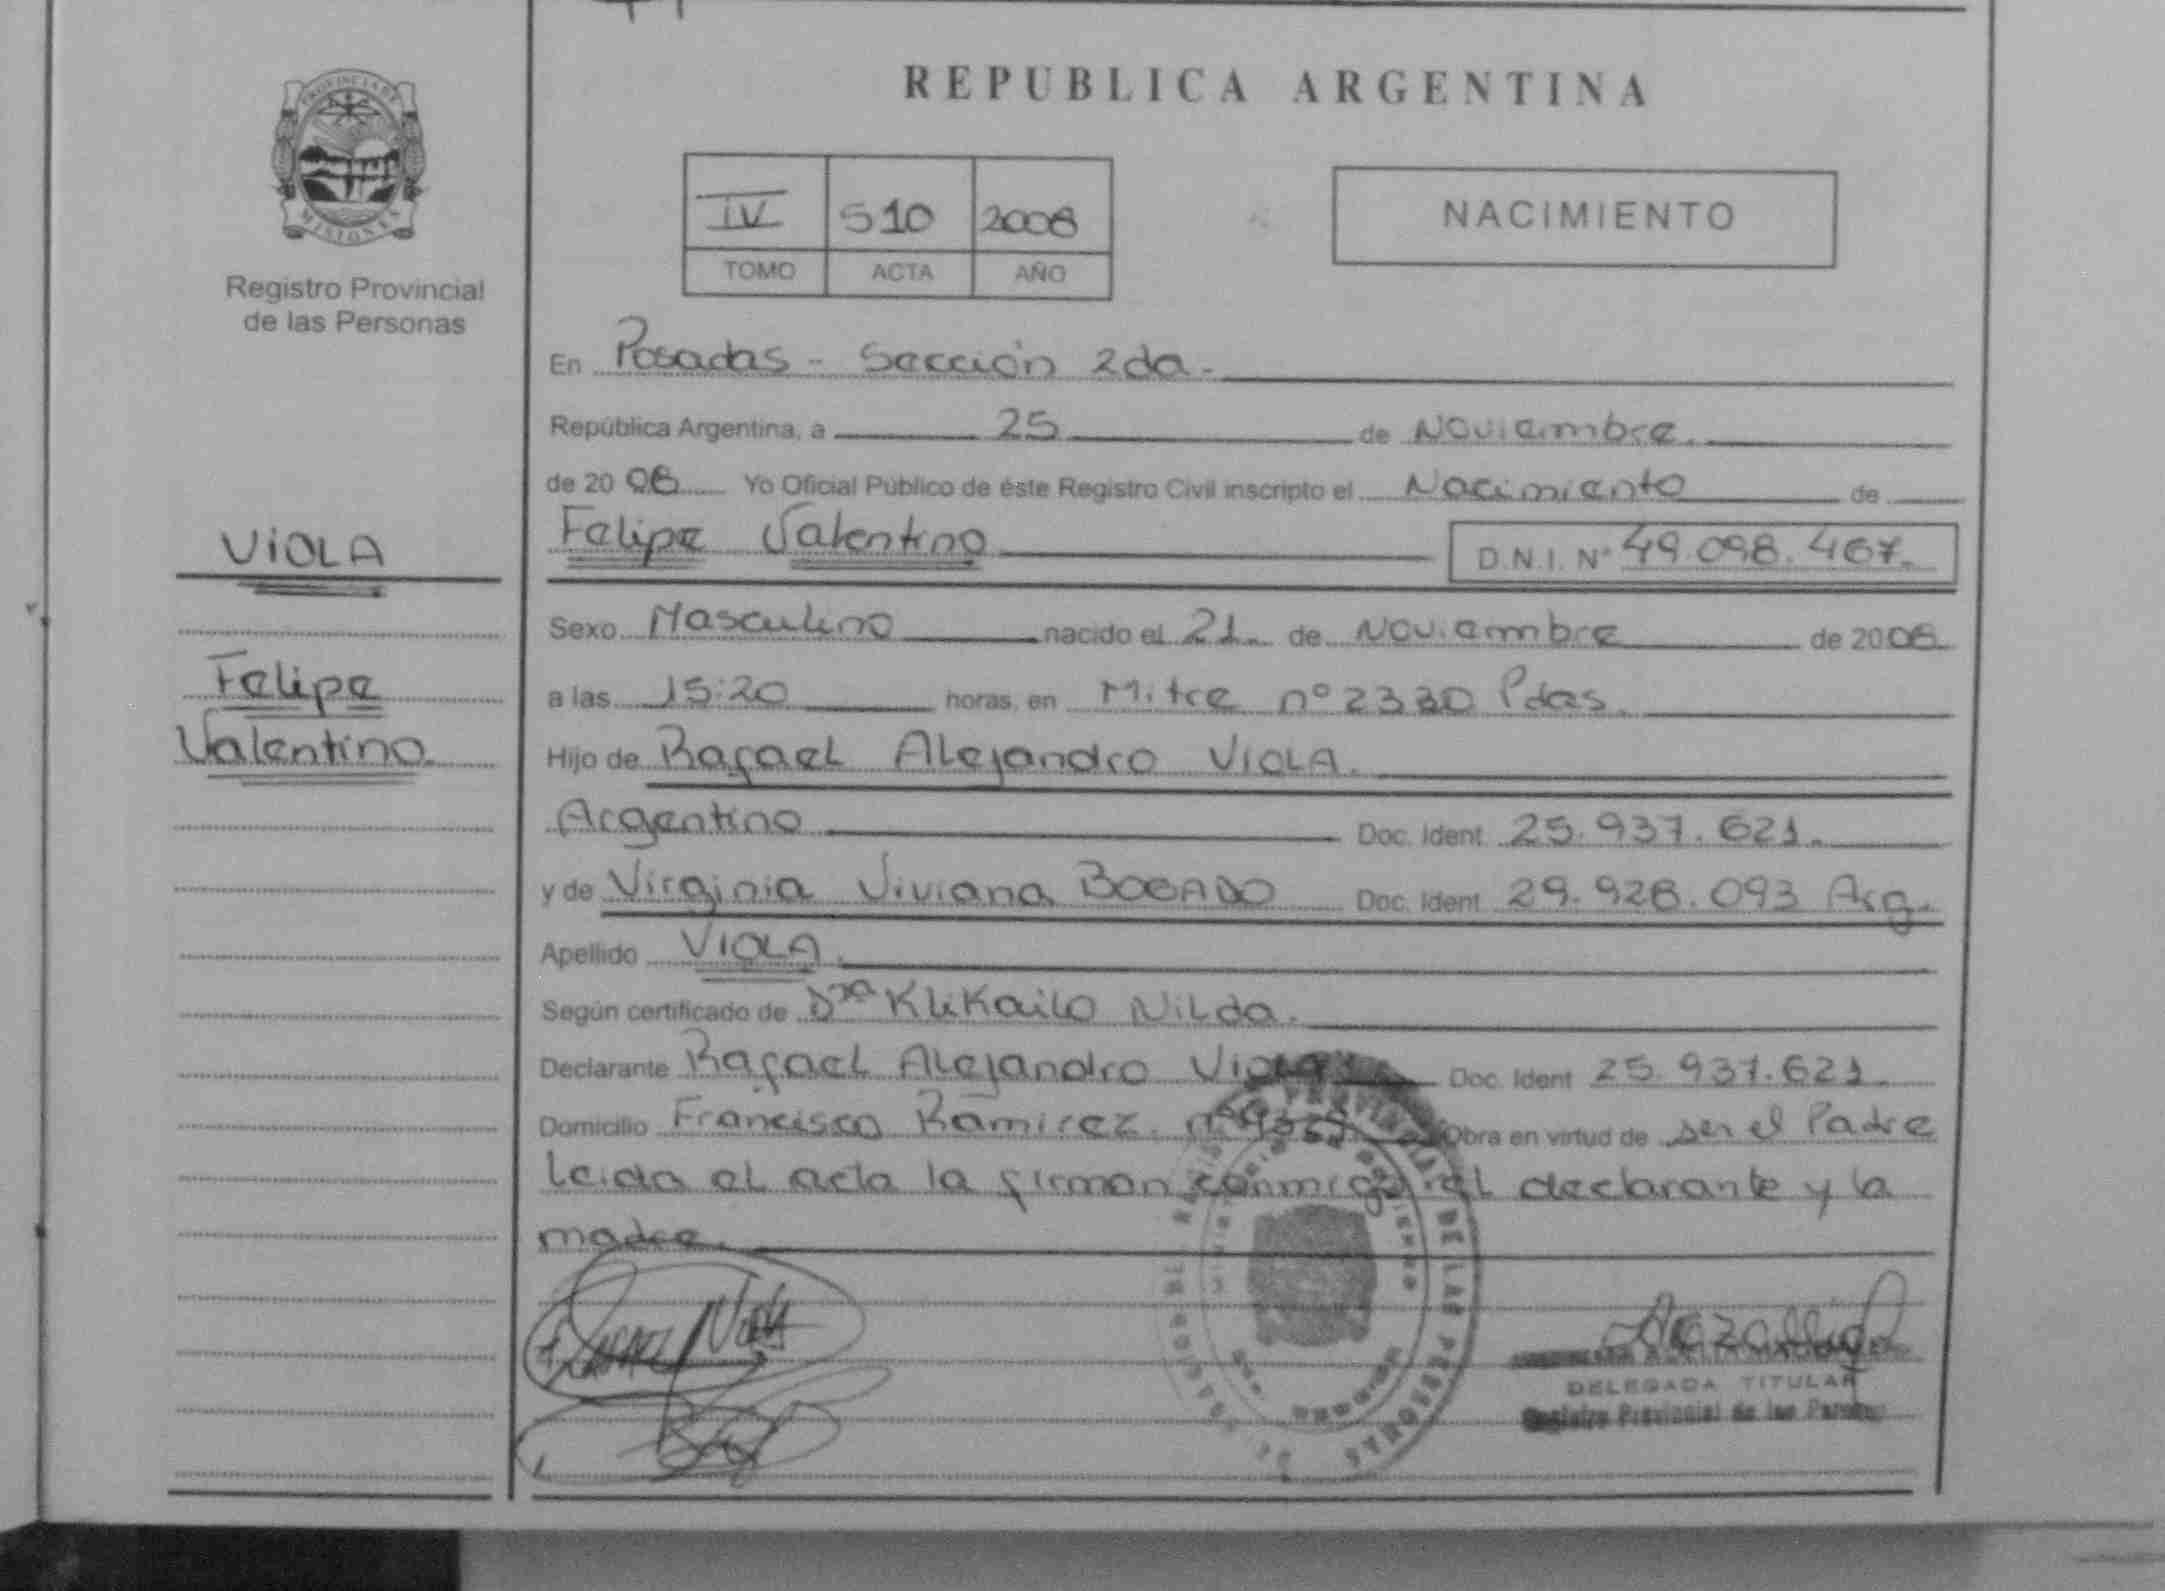 REPUBLICA ARGENTINA
PROVINCIA DE MISIONES
Registro Provincial
de las Personas
IV 510 2008
TOMO ACTA AÑO
NACIMIENTO
En Posadas - Sección 2da.
República Argentina, a 25 de Noviembre.
de 20 08 Yo Oficial Público de éste Registro Civil inscripto el Nacimiento de
VIOLA
Felipe Valentino D.N.I. N° 49.098.467.
Sexo Masculino nacido el 21. de Noviembre de 2008
Felipe
Valentino.
a las 15:20 horas, en Mitre nº 2330 Pdas.
Hijo de Rafael Alejandro VIOLA.
Argentino Doc. Ident 25.937.621.
y de Virginia Viviana BOGADO Doc. Ident 29.928.093 Arg.
Apellido VIOLA.
Según certificado de Dra Klikailo Nilda.
Declarante Rafael Alejandro Viola Doc. Ident 25.937.621.
Domicilio Francisco Ramirez. nº Obra en virtud de ser el Padre
Leida el acta la firman conmigo el declarante y la
madre.
REGISTRO PROVINCIAL DE LAS PERSONAS
DELEGADA TITULAR
Registro Provincial de las Personas